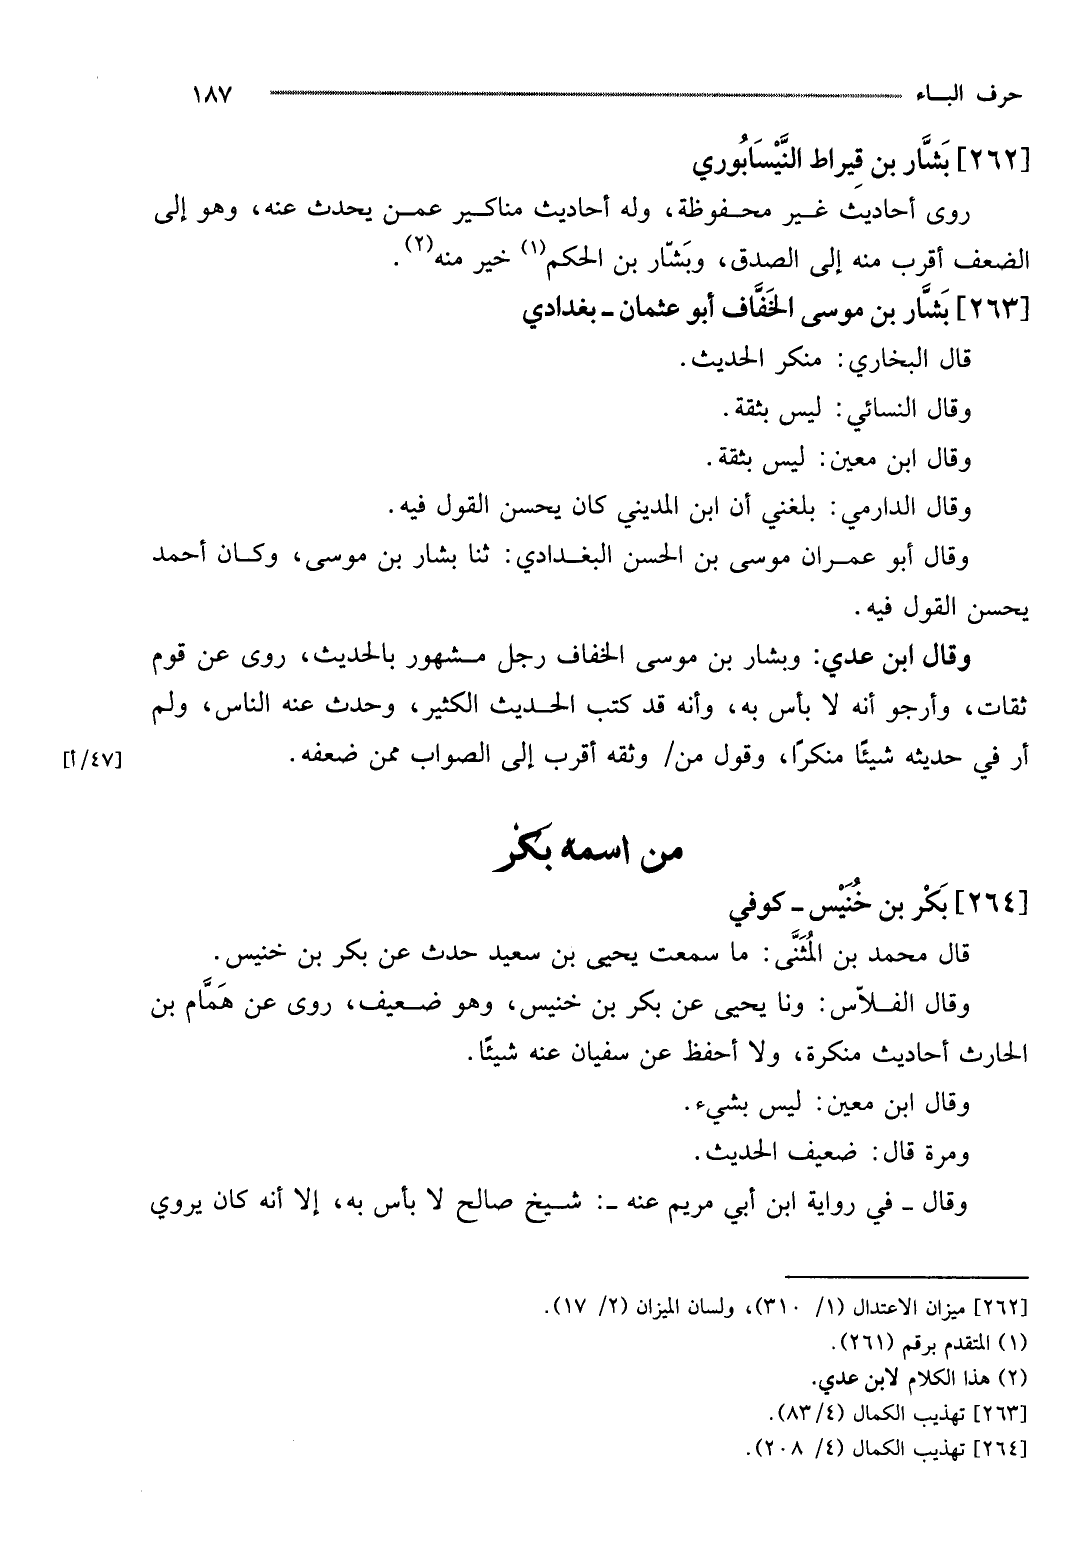 حرف البـاء ١٨٧
[٢٦٢] بَشَّار بن قِيراط النَّيْسَابُوري
روى أحاديث غـير محـفوظة، وله أحاديث مناكـير عمـن يحدث عنه، وهو إلى
الضعف أقرب منه إلى الصدق، وبَشّار بن الحكم(١) خير منه(٢).
[٢٦٣] بَشَّار بن موسى الخَفَّاف أبو عثمان ـ بغدادي
قال البخاري: منكر الحديث.
وقال النسائي: ليس بثقة.
وقال ابن معين: ليس بثقة.
وقال الدارمي: بلغني أن ابن المديني كان يحسن القول فيه.
وقال أبو عمـران موسى بن الحسن البغـدادي: ثنا بشار بن موسى، وكـان أحمد
يحسن القول فيه.
وقال ابن عدي: وبشار بن موسى الخفاف رجل مـشهور بالحديث، روى عن قوم
ثقات، وأرجو أنه لا بأس به، وأنه قد كتب الحـديث الكثير، وحدث عنه الناس، ولم
أر في حديثه شيئًا منكرًا، وقول من/ وثقه أقرب إلى الصواب ممن ضعفه. [٤٧/أ]
من اسمه بَكْر
[٢٦٤] بَكْر بن خُنَيْس ـ كوفي
قال محمد بن المُثَنَّى: ما سمعت يحيى بن سعيد حدث عن بكر بن خنيس.
وقال الفـلاّس: ونا يحيى عن بكر بن خنيس، وهو ضـعيف، روى عن هَمَّام بن
الحارث أحاديث منكرة، ولا أحفظ عن سفيان عنه شيئًا.
وقال ابن معين: ليس بشيء.
ومرة قال: ضعيف الحديث.
وقال ـ في رواية ابن أبي مريم عنه ـ: شـيخ صالح لا بأس به، إلا أنه كان يروي
[٢٦٢] ميزان الاعتدال (١/ ٣١٠)، ولسان الميزان (٢/ ١٧).
(١) المتقدم برقم (٢٦١).
(٢) هذا الكلام لابن عدي.
[٢٦٣] تهذيب الكمال (٤/ ٨٣).
[٢٦٤] تهذيب الكمال (٤/ ٢٠٨).